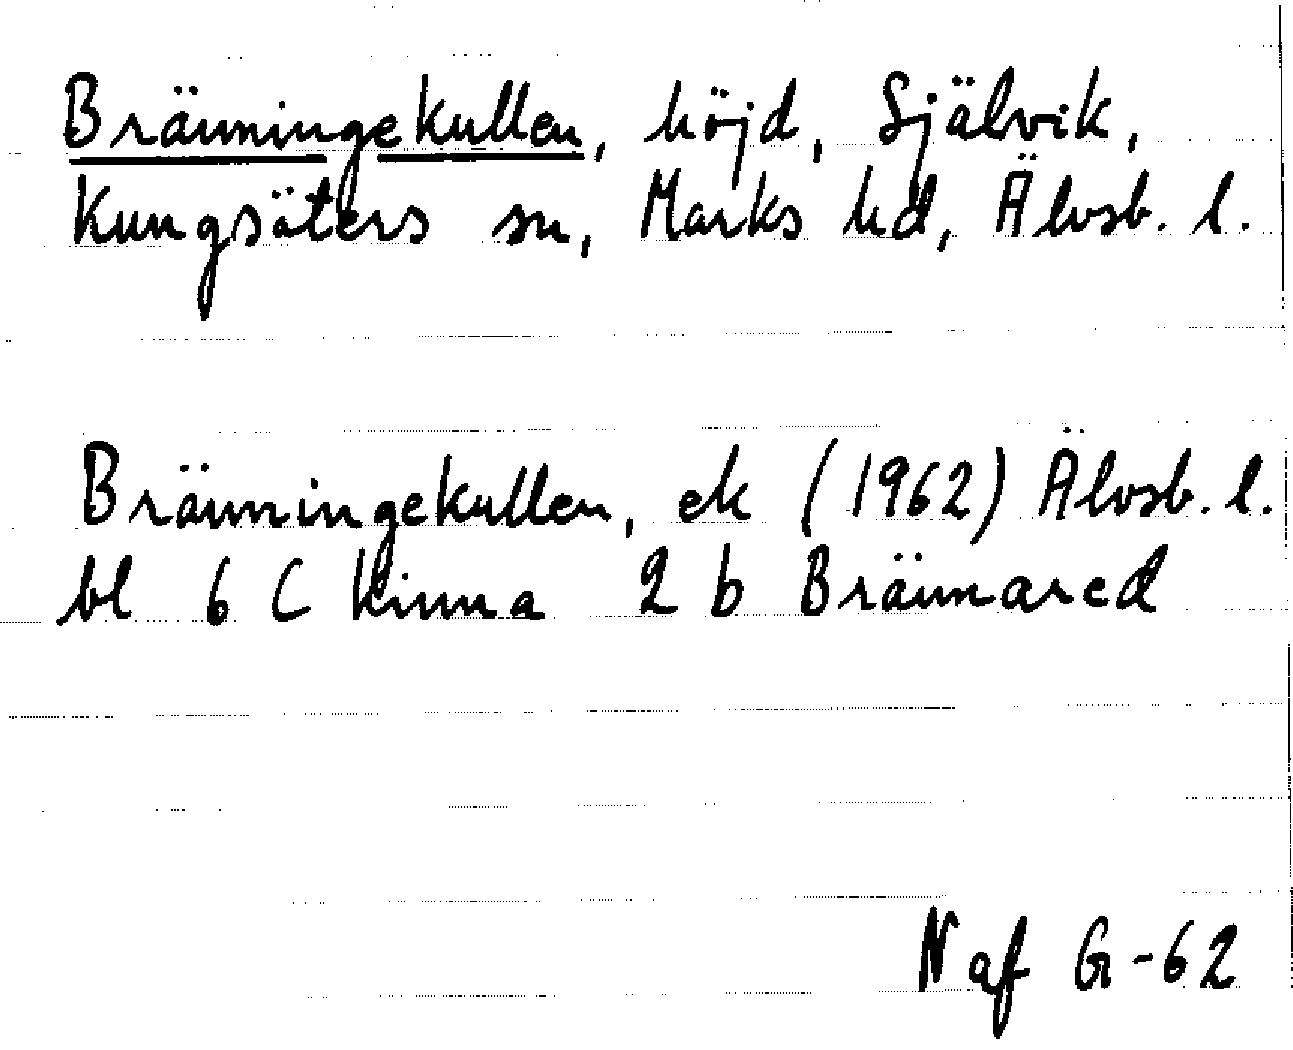 Bränningekullen, höjd, Självik,
Kungsäters sn, Marks hd, Älvsb. l.
Bränningekullen, ek (1962) Älvsb. l.
bl 6 C Kinna 2 b Brännared
N af G-62